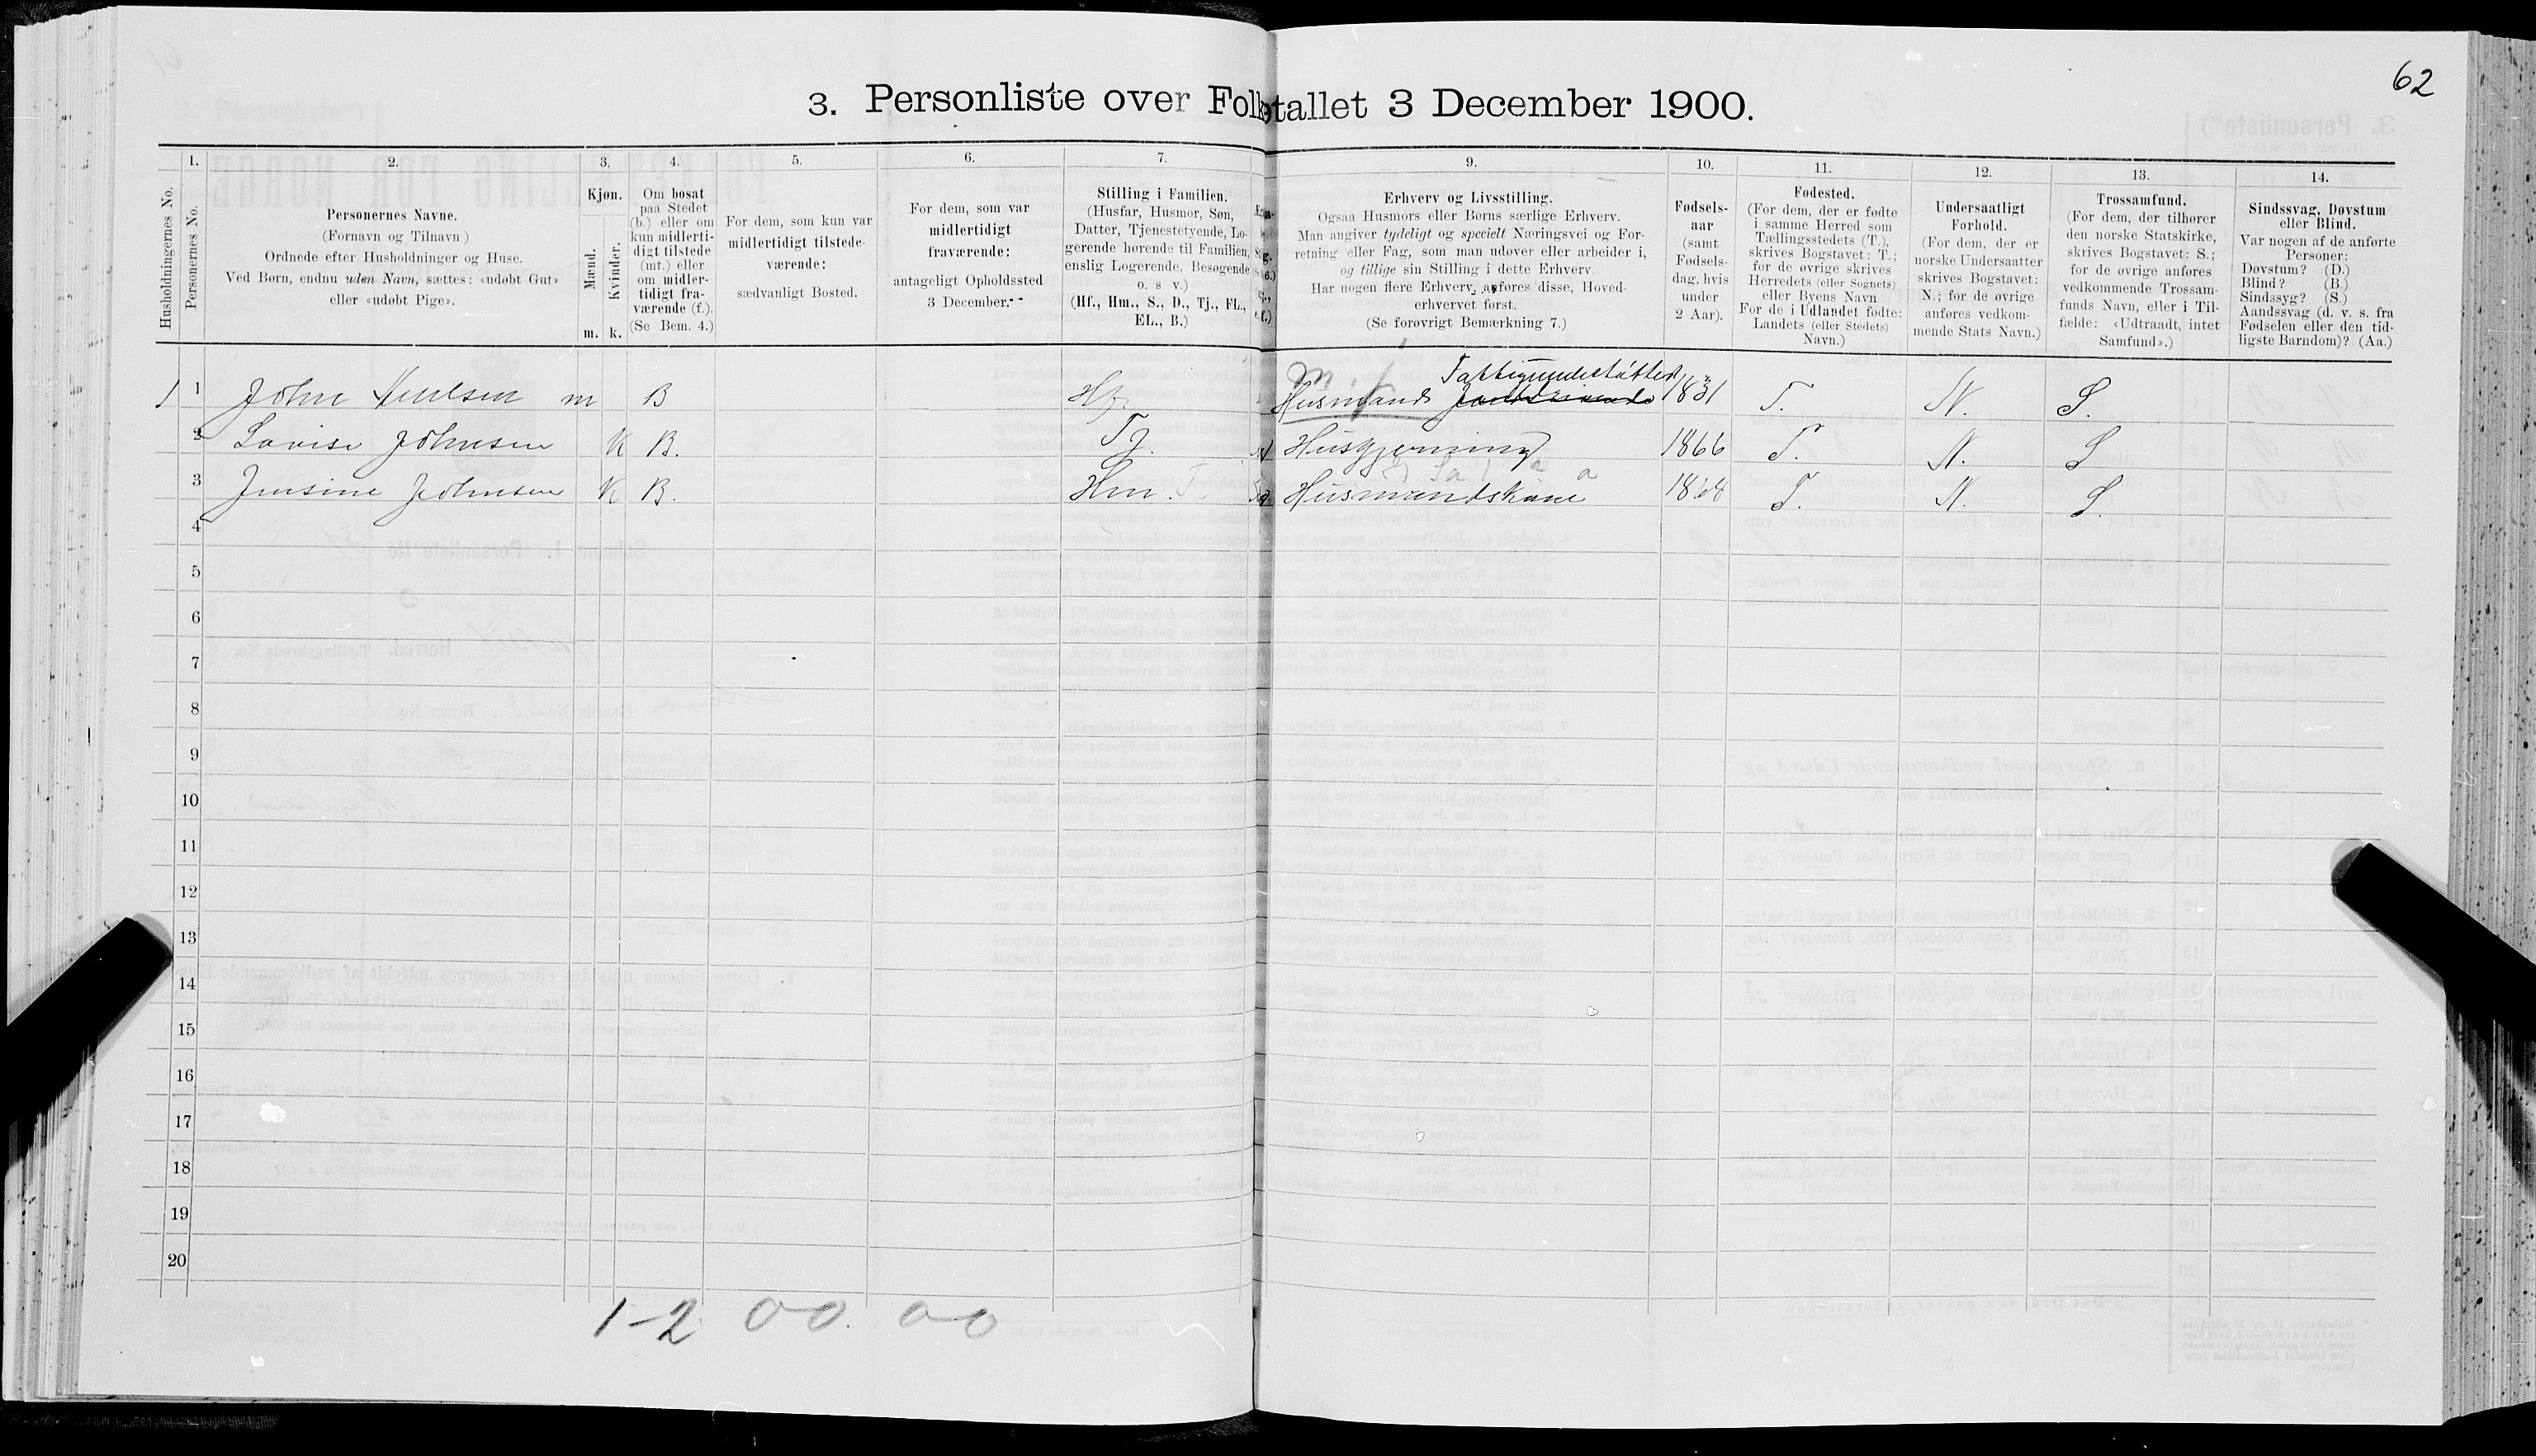 62
3. Personliste over Folketallet 3 December 1900.
1. 2. 3. 4. 5. 6. 7. 9. 10. 11. 12. 13. 14.
Husholdningernes No.
Personernes No.
Personernes Navne.
(Fornavn og Tilnavn)
Ordnede efter Husholdninger og Huse.
Ved Børn, endnu uden Navn, sættes: «udøbt Gut»
eller «udøbt Pige».
Kjøn.
Mænd.
Kvinder.
m. k.
Om bosat
paa Stedet
(b.) eller om
kun midlerti-
digt tilstede
(mt.) eller
om midler-
tidigt fra-
værende (f.).
(Se Bem. 4.)
For dem, som kun var
midlertidigt tilstede-
værende:
sædvanligt Bosted.
For dem, som var
midlertidigt
fraværende:
antageligt Opholdssted
3 December.
Stilling i Familien.
(Husfar, Husmor, Søn,
Datter, Tjenestetyende, Lo-
gerende hørende til Familien,
enslig Logerende, Besøgende
o. s v.)
(Hf., Hm., S., D., Tj., FL.,
EL., B.)
Erhverv og Livsstilling.
Ogsaa Husmors eller Børns særlige Erhverv.
Man angiver tydeligt og specielt Næringsvei og For-
retning eller Fag, som man udøver eller arbeider i,
og tillige sin Stilling i dette Erhverv.
Har nogen flere Erhverv, anføres disse, Hoved-
erhvervet først.
(Se forøvrigt Bemærkning 7.)
Fødsels-
aar
(samt
Fødsels-
dag, hvis
under
2 Aar).
Fødested.
(For dem, der er fødte
i samme Herred som
Tællingsstedets (T.),
skrives Bogstavet: T.;
for de øvrige skrives
Herredets (eller Sognets)
eller Byens Navn
For de i Udlandet fødte:
Landets (eller Stedets)
Navn.)
Undersaatligt
Forhold.
(For dem, der er
norske Undersaatter
skrives Bogstavet:
N.; for de øvrige
anføres vedkom-
mende Stats Navn.)
Trossamfund.
(For dem, der tilhører
den norske Statskirke,
skrives Bogstavet: S.;
for de øvrige anføres
vedkommende Trossam-
funds Navn, eller i Til-
fælde: «Udtraadt, intet
Samfund».)
Sindssvag, Døvstum
eller Blind.
Var nogen af de anførte
Personer:
Døvstum? (D.)
Blind? (B.)
Sindssyg? (S.)
Aandssvag (d. v. s. fra
Fødselen eller den tid-
ligste Barndom)? (Aa.)
Fattigunderstøttet
1 1 John m B Hf. Husmand 1831 T. N. S.
2 Lovise Johnsen K B. Tj. Husgjerning 1866 T. N. S
3 Jensine Johnsen K B. Hm. Husmandskone T. N. S.
4
5
6
7
8
9
10
11
12
13
14
15
16
17
18
19
20
1-2 0-0. 0-0